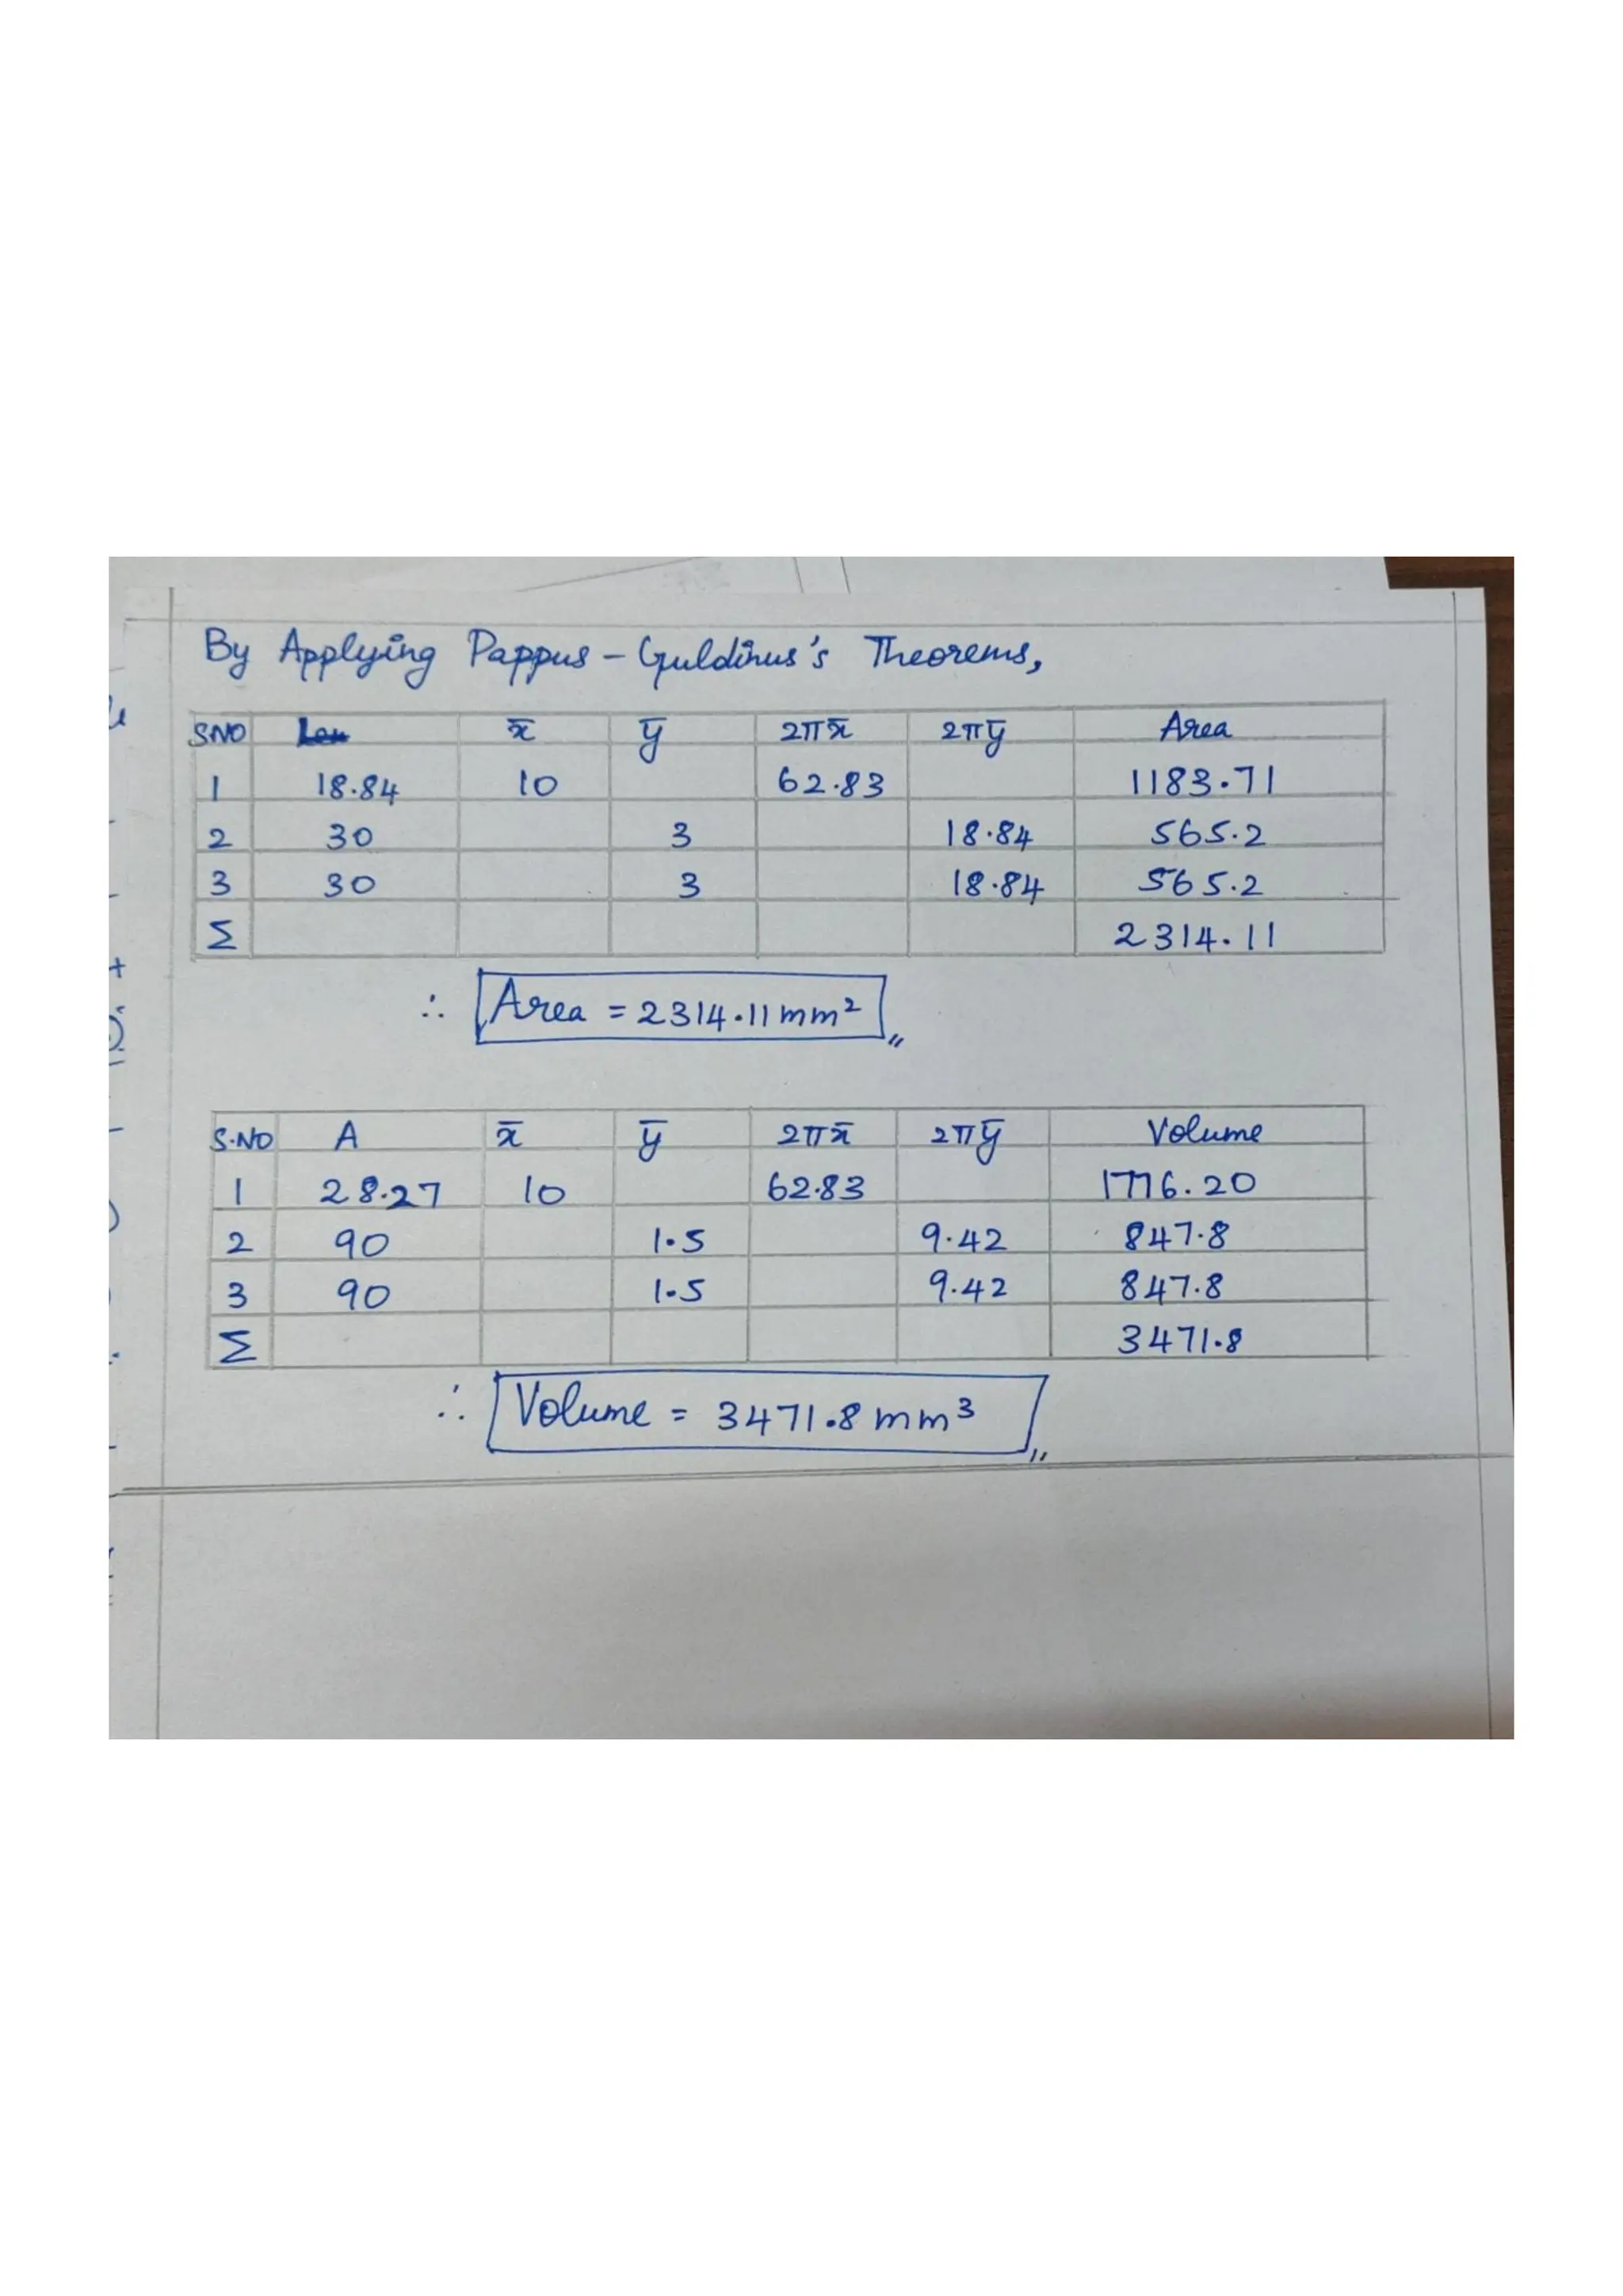 By Applying Pappus - Guldinus's Theorems,
SNO x̄ ȳ 2πx̄ 2πȳ Area
1 18.84 10 62.83 1183.71
2 30 3 18.84 565.2
3 30 3 18.84 565.2
Σ 2314.11
∴ Area = 2314.11 mm²
S.NO A x̄ ȳ 2πx̄ 2πȳ Volume
1 28.27 10 62.83 1776.20
2 90 1.5 9.42 847.8
3 90 1.5 9.42 847.8
Σ 3471.8
∴ Volume = 3471.8 mm³